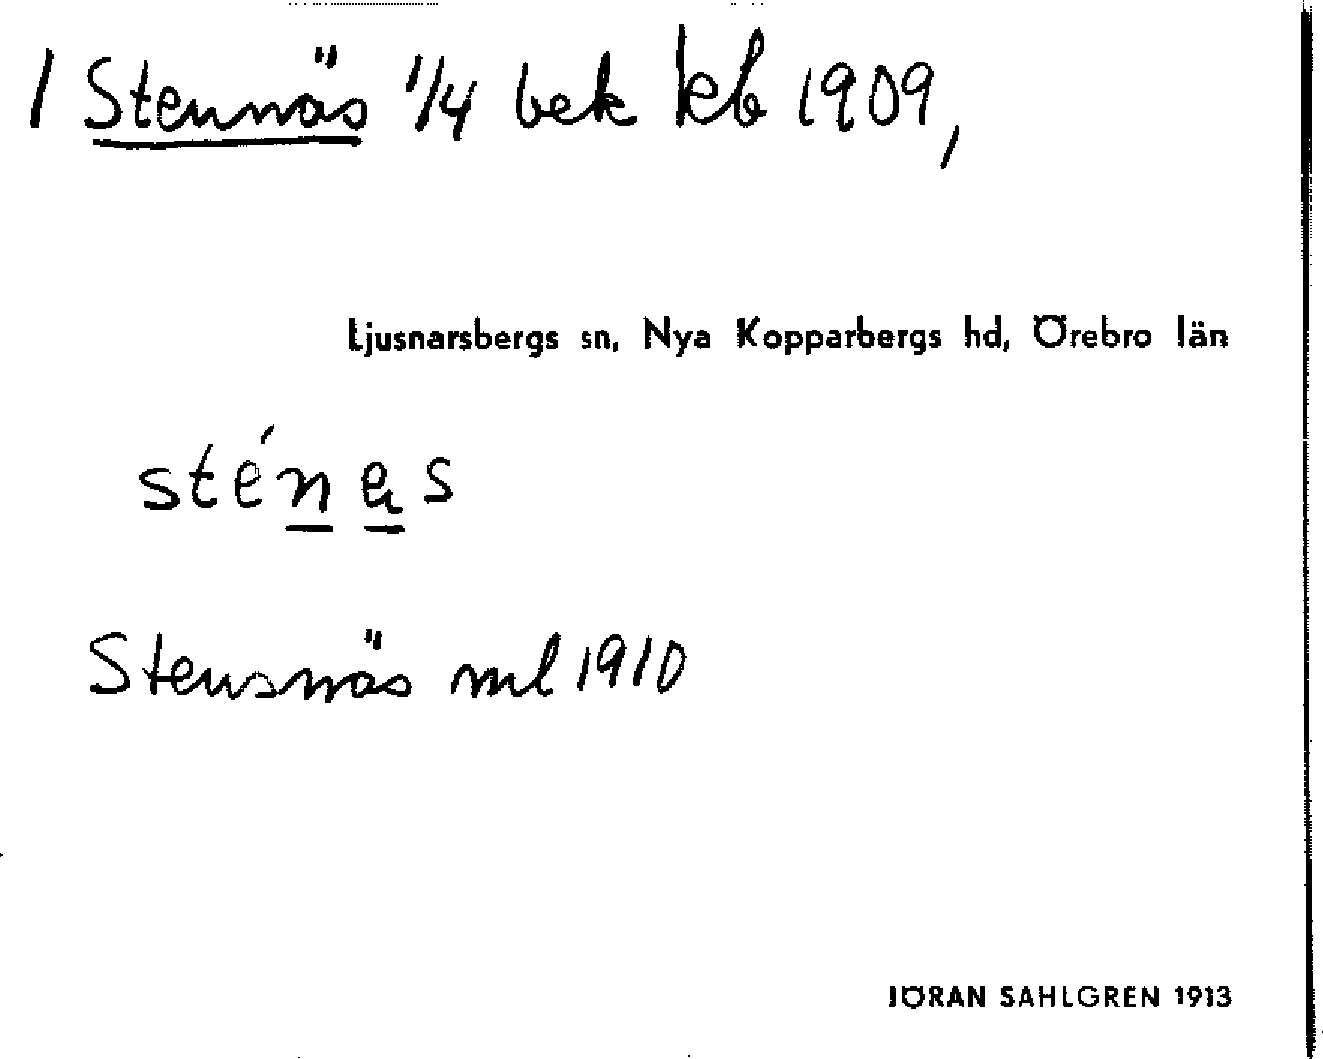 / Stennäs 1/4 bek kb 1909,
Ljusnarsbergs sn, Nya Kopparbergs hd, Örebro län
sténas
Stensnäs ml 1910
JÖRAN SAHLGREN 1913